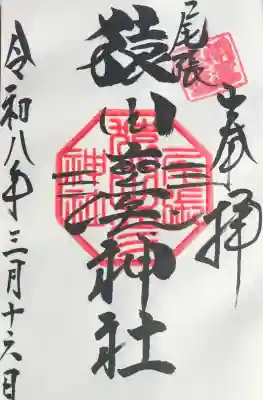 奉拝
尾張
猿田彦神社
令和八年三月十六日